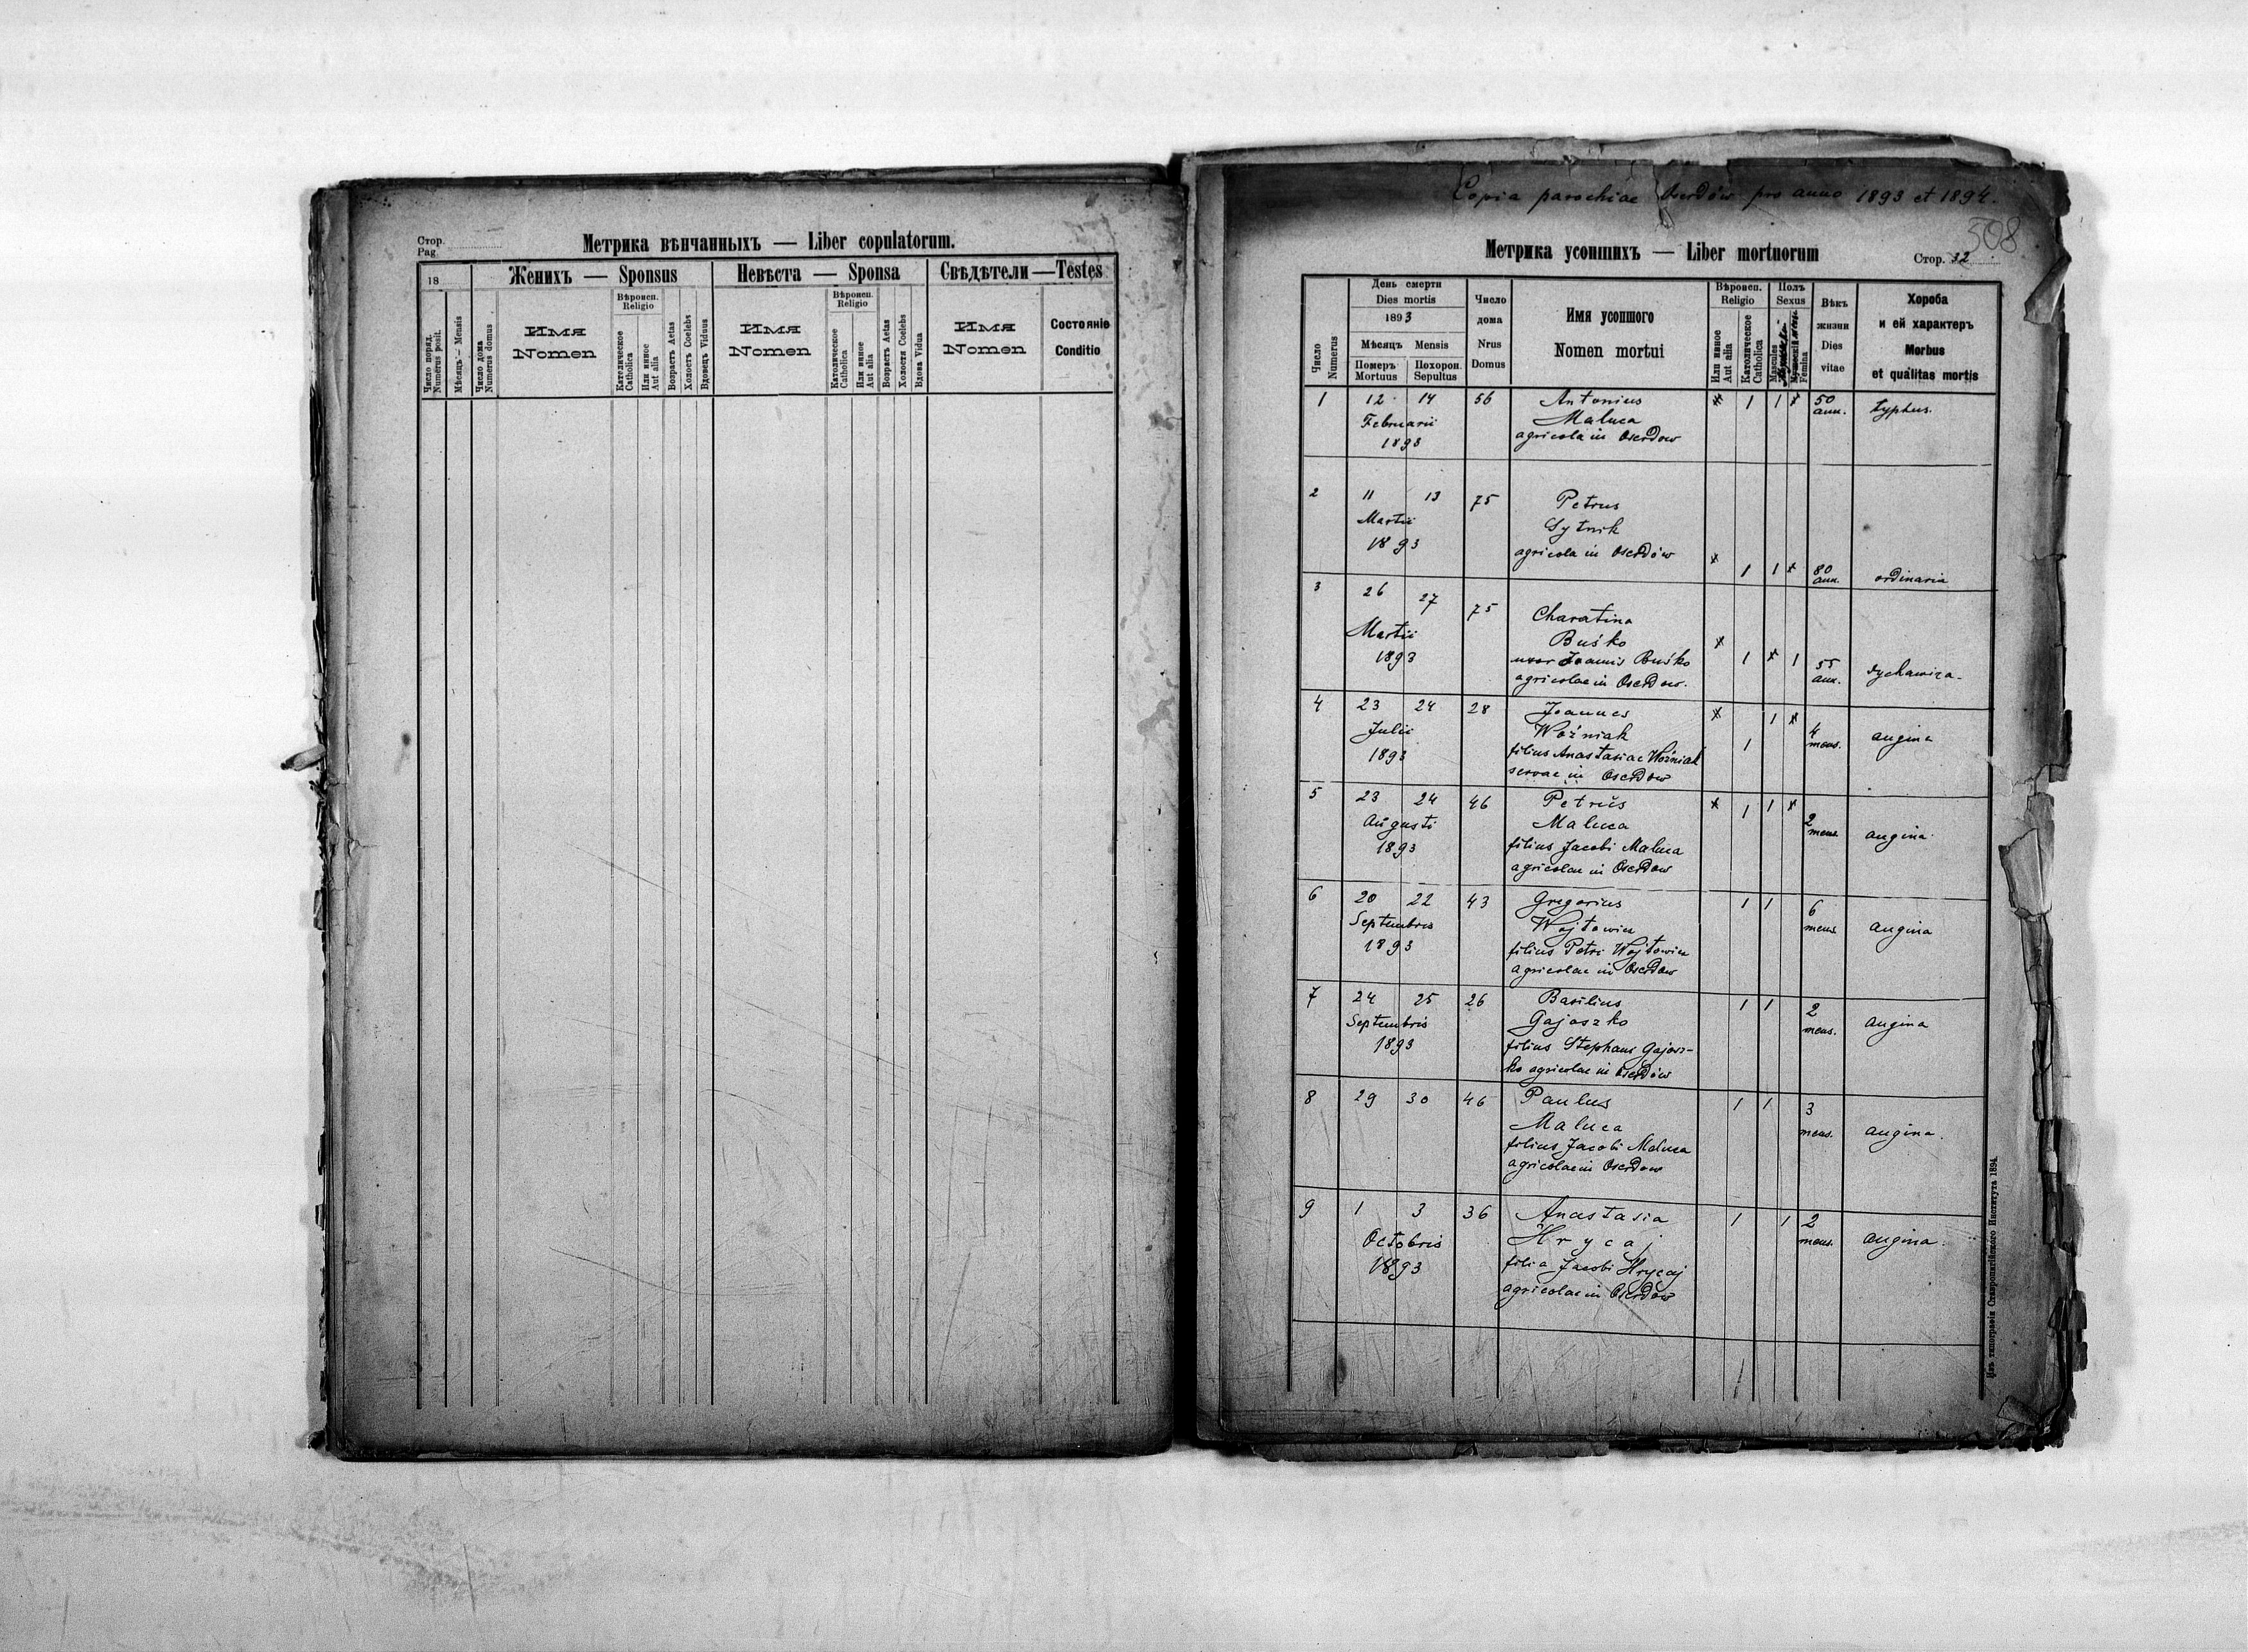 Стор.
Pag.
Метрика вѣнчанныхъ — Liber copulatorum.
18
Женихъ — Sponsus
Невѣста — Sponsa
Свѣдѣтели — Testes
Число поряд.
Numerus posit.
Мѣсяцъ — Mensis
Число дома
Numerus domus
Имя
Nomen
Вѣроисп.
Religio
Католическое
Catholica
Или инное
Aut alia
Возрастъ Aetas
Холостъ Coelebs
Вдовецъ Viduus
Имя
Nomen
Вѣроисп.
Religio
Католическое
Catholica
Или инное
Aut alia
Возрастъ Aetas
Холостя Coelebs
Вдова Vidua
Имя
Nomen
Состояніе
Conditio
Copia parochiae Oserdów pro anno 1893 et 1894.
508
Метрика усопшихъ — Liber mortuorum
Стор. 32
Число
Numerus
День смерти
Dies mortis
1893
Мѣсяцъ Mensis
Померъ
Mortuus
Похорон.
Sepultus
Число
дома
Nrus
Domus
Имя усопшого
Nomen mortui
Вѣроисп.
Religio
Или инное
Aut alia
Католическое
Catholica
Полъ
Sexus
Mascules
Femina
Вѣкъ
жизни
Dies
vitae
Хороба
и ей характеръ
Morbus
et qualitas mortis
1 12 14 56 Antonius 1 1 50 typhus.
Februarii Maluca ann.
1893 agricola in Oserdow
2 11 13 75 Petrus
Martii Sytnik
1893 agricola in Oserdów
1 1 80 ordinaria
ann.
3 26 27 75 Charatina
Martii Buśko
1893 uxor Joannis Buśko 1 1 55 dychawica.
agricolae in Oserdow. ann.
4 23 24 28 Joannes 1
Julii Woźniak 1 4 angina
1893 filius Anastasiae Woźniak mens.
servae in Oserdow
5 23 24 46 Petrus 1 1
Augusti Maluca 2 angina.
1893 filius Jacobi Maluca mens.
agricolae in Oserdow
6 20 22 43 Gregorius 1 1 6
Septembris Wojtowicz mens. angina
1893 filius Petri Wojtowicz
agricolae in Oserdow
7 24 25 26 Basilius 1 1 2
Septembris Gajoszko mens. angina
1893 filius Stephani Gajosz-
ko agricolae in Oserdów
8 29 30 46 Paulus 1 1 3
Maluca mens. angina.
filius Jacobi Maluca
agricolae in Oserdow
9 1 3 36 Anastasia 1 1 2
Octobris Hrycaj mens. angina.
1893 filia Jacobi Hrycaj
agricolae in Oserdów
Изъ типографіи Ставропигійского Института 1894.